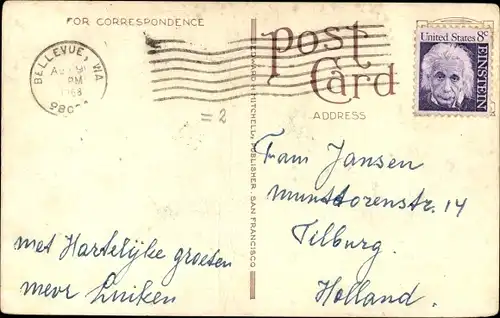 FOR CORRESPONDENCE
BELLEVUE, WA
PM
1968
post
Card
ADDRESS
United States 8c
EINSTEIN
EDWARD H. MITCHELL, PUBLISHER, SAN FRANCISCO
= 2
Fam Jansen
14
Tilburg.
Holland.
met Hartelijke groeten
mevr Luiken